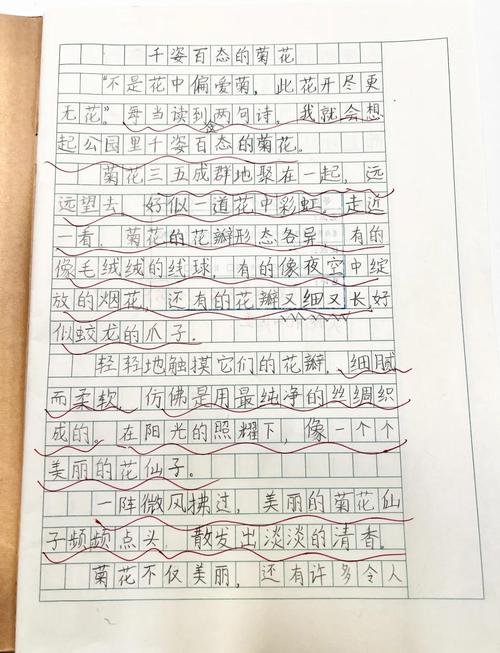 千姿百态的菊花
“不是花中偏爱菊，此花开尽更
无花。”每当读到两句诗，我就会想
起公园里千姿百态的菊花。
菊花三五成群地聚在一起，远
远望去，好似一道花中彩虹，走近
一看，菊花的花瓣形态各异，有的
像毛绒绒的线球，有的像夜空中绽
放的烟花，还有的花瓣又细又长，好
似蛟龙的爪子。
轻轻地触摸它们的花瓣，细腻
而柔软，仿佛是用最纯净的丝绸织
成的。在阳光的照耀下，像一个个
美丽的花仙子。
一阵微风拂过，美丽的菊花仙
子频频点头，散发出淡淡的清香。
菊花不仅美丽，还有许多令人